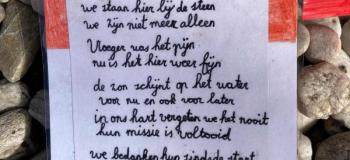 we staan hier bij de steen
we zijn niet meer alleen
Vroeger was het pijn
nu is het hier weer fijn
de zon schijnt op het water
voor nu en ook voor later
in ons hart vergeten we het nooit
hun missie is voltooid
we bedanken hun